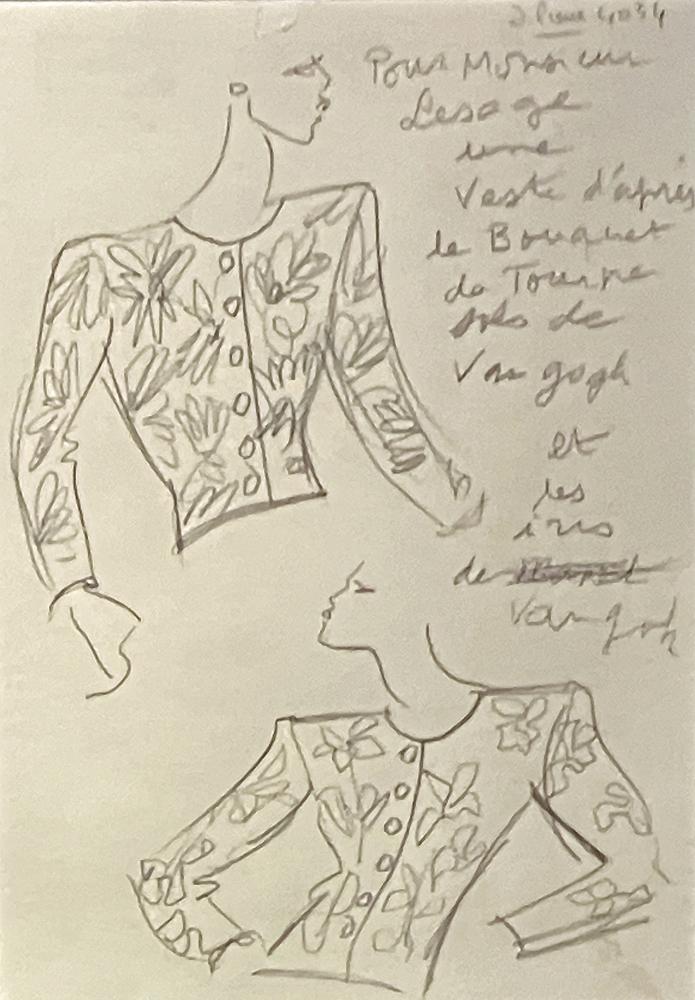 Pour Monsieur
Lesage
une
Veste d'après
le Bouquet
de Tourne
sols de
Van gogh
et
les
iris
de
Van gogh